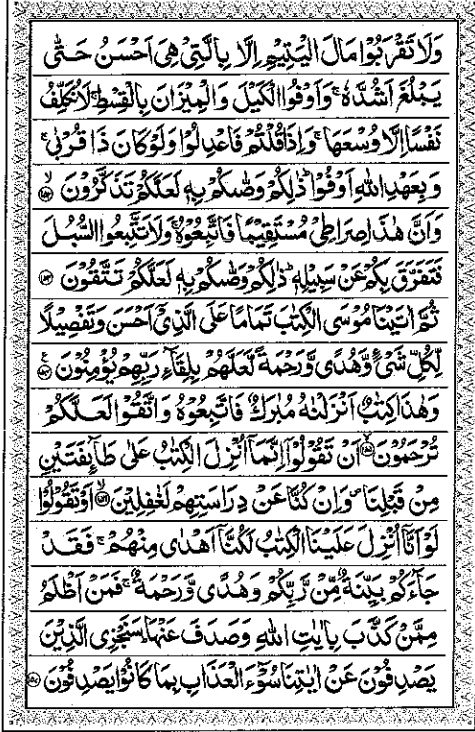 وَلَا تَقْرَبُوْا مَالَ الْيَتِيْمِ اِلَّا بِالَّتِىْ هِىَ اَحْسَنُ حَتّٰى
يَبْلُغَ اَشُدَّهٗ ۚ وَاَوْفُوا الْكَيْلَ وَالْمِيْزَانَ بِالْقِسْطِ ۚ لَا نُكَلِّفُ
نَفْسًا اِلَّا وُسْعَهَا ۚ وَاِذَا قُلْتُمْ فَاعْدِلُوْا وَلَوْ كَانَ ذَا قُرْبٰى ۚ
وَبِعَهْدِ اللهِ اَوْفُوْا ؕ ذٰلِكُمْ وَصّٰىكُمْ بِهٖ لَعَلَّكُمْ تَذَكَّرُوْنَ ۙ‏﴿۱۵۲﴾
وَاَنَّ هٰذَا صِرَاطِىْ مُسْتَقِيْمًا فَاتَّبِعُوْهُ ۚ وَلَا تَتَّبِعُوا السُّبُلَ
فَتَفَرَّقَ بِكُمْ عَنْ سَبِيْلِهٖ ؕ ذٰلِكُمْ وَصّٰىكُمْ بِهٖ لَعَلَّكُمْ تَتَّقُوْنَ ﴿۱۵۳﴾
ثُمَّ اٰتَيْنَا مُوْسَى الْكِتٰبَ تَمَامًا عَلَى الَّذِىْۤ اَحْسَنَ وَتَفْصِيْلًا
لِّكُلِّ شَىْءٍ وَّهُدًى وَّرَحْمَةً لَّعَلَّهُمْ بِلِقَآءِ رَبِّهِمْ يُؤْمِنُوْنَ ﴿۱۵۴﴾
وَهٰذَا كِتٰبٌ اَنْزَلْنٰهُ مُبٰرَكٌ فَاتَّبِعُوْهُ وَاتَّقُوْا لَعَلَّكُمْ
تُرْحَمُوْنَ ۙ﴿۱۵۵﴾ اَنْ تَقُوْلُوْۤا اِنَّمَاۤ اُنْزِلَ الْكِتٰبُ عَلٰى طَآئِفَتَيْنِ
مِنْ قَبْلِنَا ۪ وَاِنْ كُنَّا عَنْ دِرَاسَتِهِمْ لَغٰفِلِيْنَ ۙ﴿۱۵۶﴾ اَوْ تَقُوْلُوْا
لَوْ اَنَّاۤ اُنْزِلَ عَلَيْنَا الْكِتٰبُ لَكُنَّاۤ اَهْدٰى مِنْهُمْ ۚ فَقَدْ
جَآءَكُمْ بَيِّنَةٌ مِّنْ رَّبِّكُمْ وَهُدًى وَّرَحْمَةٌ ۚ فَمَنْ اَظْلَمُ
مِمَّنْ كَذَّبَ بِاٰيٰتِ اللهِ وَصَدَفَ عَنْهَا ؕ سَنَجْزِى الَّذِيْنَ
يَصْدِفُوْنَ عَنْ اٰيٰتِنَا سُوْٓءَ الْعَذَابِ بِمَا كَانُوْا يَصْدِفُوْنَ ﴿۱۵۷﴾